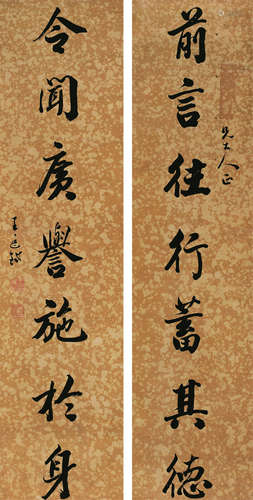 前言往行蓄其德
大人正
令聞廣譽施於身